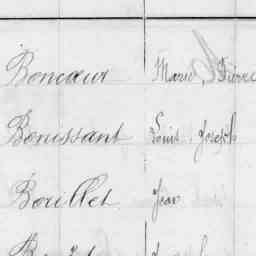 Boncœur Marie, Pierre
Bonissant Louis Joseph
Bouillet Jean